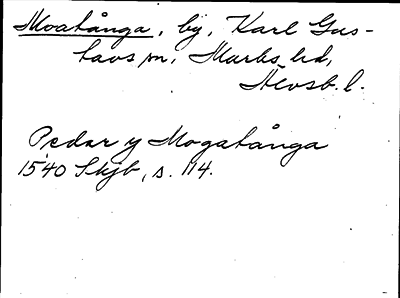 Moatånga, by, Karl Gus-
tavs sn, Marks hd,
Älvsb. l.
Pedar y Mogatånga
1540 Skjb, s. 114.